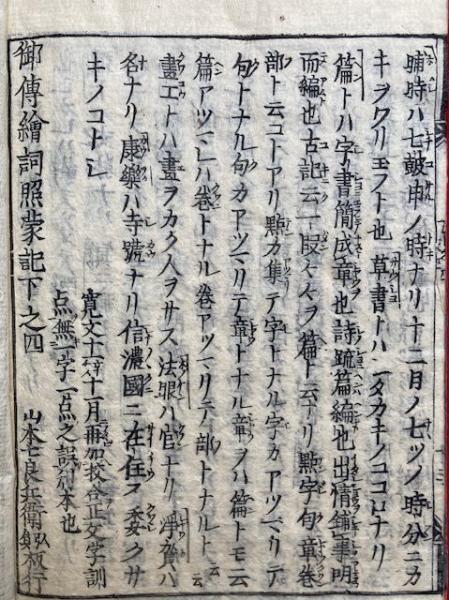 晡時ハ七皷申ノ時ナリ十二月ノ七ツノ時分ニカ
キヲクリ玉フト也草書トハ一タカキノココロナリ
篇トハ字書簡成章也詩疏篇編也出情鋪事明
而編也古記云一段々々ヲ篇ト云ヘリ點字句章巻
部ト云コトアリ點カ集テ字トナル字カアツマリテ
句トナル句カアツマリテ章トナル章ヲハ篇トモ云
篇アツマレハ巻トナル巻アツマリテ部トナルト云云
畫工トハ畫ヲカク人ヲサス法眼ハ官ナリ淨賀ハ
名ナリ康樂ハ寺號ナリ信濃國ニ在住ス委クサ
キノコトシ
寛文十一年十一月再加校合正文字訓
点無一字一点之誤好本也
御傳繪詞照蒙記下之四
山本七良兵衛 板行